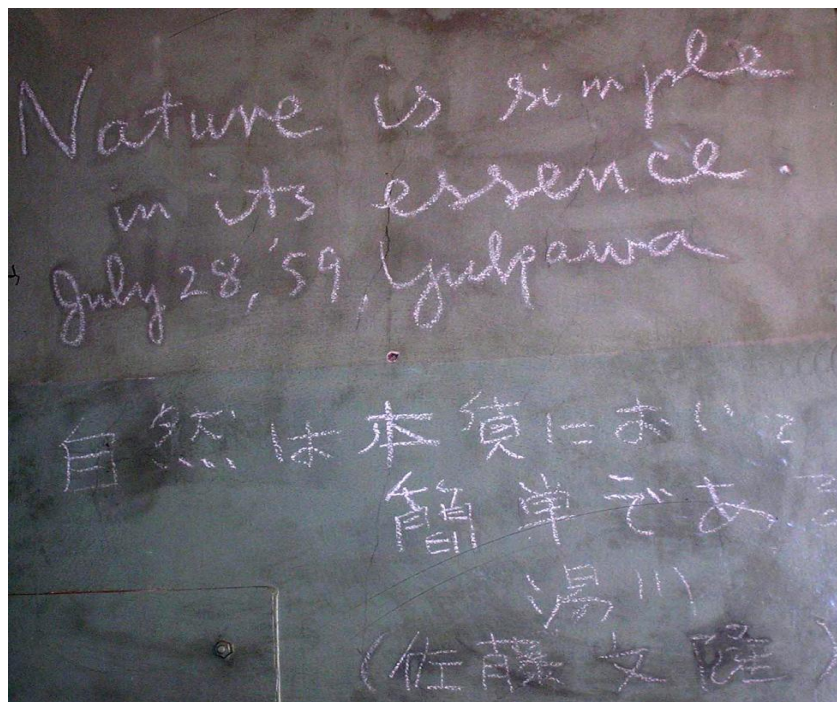 Nature is simple
in its essence.
July 28, '59, Yukawa
自然は本質において
簡単である
湯川
(佐藤文隆)